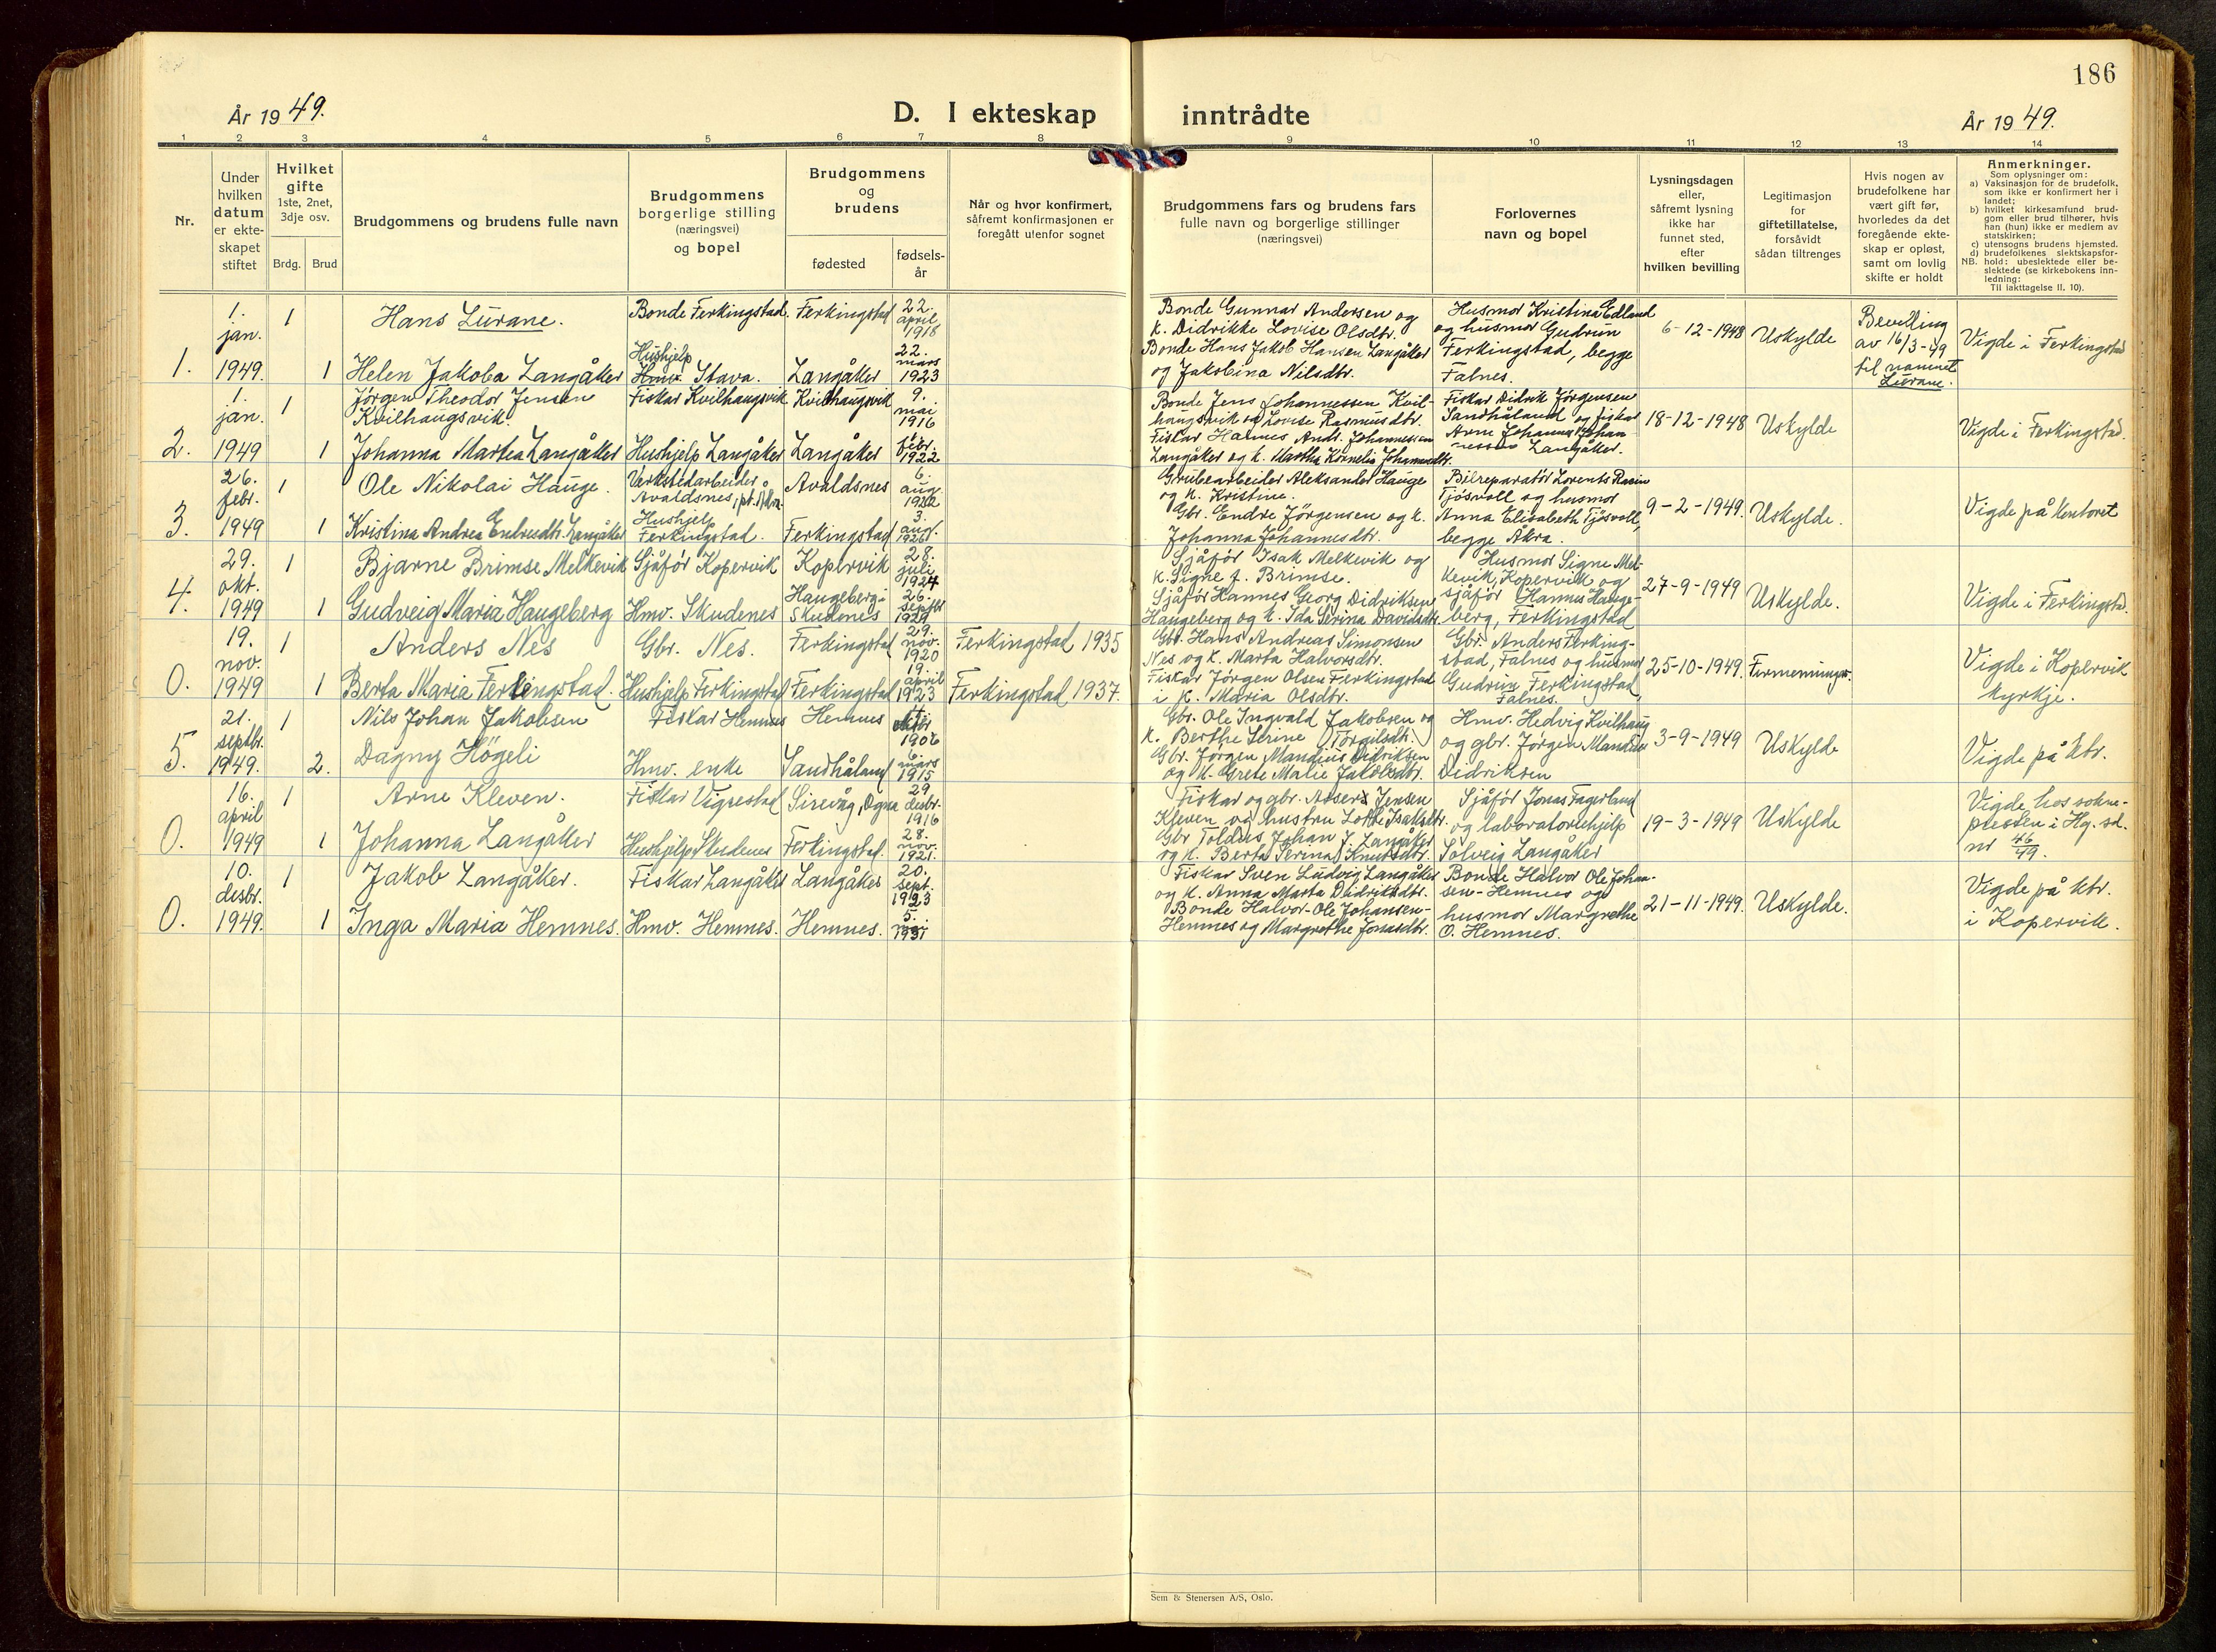 186
År 1949.
D. I ekteskap inntrådte
År 1949.
1 2 3 4 5 6 7 8 9 10 11 12 13 14
Nr.
Under
hvilken
datum
er ekte-
skapet
stiftet
Hvilket
gifte
1ste, 2net,
3dje osv.
Brdg. Brud
Brudgommens og brudens fulle navn
Brudgommens
borgerlige stilling
(næringsvei)
og bopel
Brudgommens
og
brudens
fødested
fødsels-
år
Når og hvor konfirmert,
såfremt konfirmasjonen er
foregått utenfor sognet
Brudgommens fars og brudens fars
fulle navn og borgerlige stillinger
(næringsvei)
Forlovernes
navn og bopel
Lysningsdagen
eller,
såfremt lysning
ikke har
funnet sted,
efter
hvilken bevilling
Legitimasjon
for
giftetillatelse,
forsåvidt
sådan tiltrenges
Hvis nogen av
brudefolkene har
vært gift før,
hvorledes da det
foregående ekte-
skap er opløst,
samt om lovlig
skifte er holdt
Anmerkninger.
Som oplysninger om:
a) Vaksinasjon for de brudefolk,
som ikke er konfirmert her i
landet;
b) hvilket kirkesamfund brud-
gom eller brud tilhører, hvis
han (hun) ikke er medlem av
statskirken;
c) utensogns brudens hjemsted.
d) brudefolkenes slektskapsfor-
NB. hold: ubeslektede eller be-
slektede (se kirkebokens inn-
ledning:
Til iakttagelse II. 10).
1.
1.
jan.
1949.
1
Hans Lurane.
Bonde Ferkingstad.
Ferkingstad
22.
april
1918
1
Helen Jakoba Langåker
Hushjelp
Hmv. Stava.
Langåker
22.
mars
1923
Bonde Gunnar Andersen og
k. Didrikke Lovise Olsdtr.
Bonde Hans Jakob Hansen Langåker
og Jakobina Nilsdtr.
Husmor Kristina Edland
og husmor Gudrun
Ferkingstad, begge
Falnes.
6-12-1948
Uskylde
Bevilling
av 16/3-49
til namnet
Lurane.
Vigde i Ferkingstad
2.
1.
jan.
1949
1
Jörgen Theodor Jensen
Kvilhaugsvik.
Fiskar Kvilhaugsvik
Kvilhaugsvik
9.
mai
1916
1
Johanna Martea Langåker
Hushjelp Langåker
Langåker
febr.
1922
Bonde Jens Johannessen Kvil-
haugsvik og Lovise Rasmusdtr.
Fiskar Hannes Andr. Johannessen
Langåker og k. Martha Kornelia Johannesdtr.
Fiskar Didrik Jörgensen
Sandhåland og fiskar
Arne Johannes Johan
nessen Langåker.
18-12-1948
Uskylde
Vigde i Ferkingstad.
3.
26.
febr.
1949
1
Ole Nikolai Hauge.
Verkstedarbeider
Avaldsnes, pt. Åkra.
Avaldsnes
6.
aug.
1922
1
Kristina Andrea Endresdtr. Langåker
Hushjelp
Ferkingstad.
Ferkingstad
3.
aug.
1926
Grubearbeider Aleksander Hauge
og k. Kristine.
Gbr. Endre Jörgensen og k.
Johanna Johannesdtr.
Bilreparatör Lorents Rasin
Tjösvoll og husmor
Anna Elisabeth Tjösvoll,
begge Åkra.
9-2-1949.
Uskylde.
Vigde på kontoret
4.
29.
okt.
1949
1
Bjarne Brimse Melkevik
Sjåför Kopervik
Kopervik
28.
juli
1924
1
Gudveig Maria Haugeberg
Hmv. Skudenes
Haugeberg i
Skudenes
26.
septbr
1929
Sjåför Isak Melkevik og
k. Signe f. Brimse.
Sjåför Hannes Georg Didriksen
Haugeberg og k. Ida Serina Davidsdtr.
Husmor Signe Mel-
kevik, Kopervik og
sjåför Hannes Hauge-
berg, Ferkingstad
27-9-1949
Uskylde.
Vigde i Ferkingstad.
0.
19.
nov.
1949
1
Anders Nes
Gbr. Nes.
Ferkingstad
29.
nov.
1920
Ferkingstad 1935
1
Berta Maria Ferkingstad.
Hushjelp Ferkingstad
Ferkingstad
19.
april
1923
Ferkingstad 1937.
Gbr. Hans Andreas Simonsen
Nes og k. Marta Halvorsdtr.
Fiskar Jörgen Olsen Ferkingstad
i k. Maria Olsdtr.
Gbr. Anders Ferking-
stad, Falnes og husmor
Gudrun Ferkingstad
Falnes.
25-10-1949.
Firmenninger.
Vigde i Kopervik
kyrkje.
5.
21.
septbr.
1949.
1
Nils Johan Jakobsen
Fiskar Hemnes
Hemnes
1906
2.
Dagny Högeli
Hmv. enke
Sandhåland
6.
mars
1915
Gbr. Ole Ingvald Jakobsen og
k. Berthe Serine (Torgilsdtr.)
Gbr. Jörgen Mandius Didriksen
og k. Grete Malie Jakobsdtr.
Hmv. Hedvig Kvilhaug
og gbr. Jörgen Mandius
Didriksen
3-9-1949
Uskylde
Vigde på ktr.
0.
16.
april
1949
1
Arne Kleven.
Fiskar Vigrestad
Sirevåg, Ogna
29.
desbr.
1916
1
Johanna Langåker
Hushjelp Skudenes
Ferkingstad.
28.
nov.
1921.
Fiskar og gbr. Assers Jensen
Kleven og hustru Lotte Isaksdtr.
Gbr Toldius Johan J. Langåker
og k. Berta Serina Knutsdtr.
Sjåför Jonas Fagerland
og laboratoriehjelp
Solveig Langåker
19-3-1949
Uskylde
Vigde hos sokne-
presten i Hg. sd.
nr 46/49.
0.
10.
desbr.
1949.
1
Jakob Langåker.
Fiskar Langåker
Langåker
20.
sept.
1923
1
Inga Maria Hemnes.
Hmv. Hemnes.
Hemnes.
5.
mai
1931
Fiskar Sven Ludvig Langåker
og k. Anna Marta Didriksdtr.
Bonde Halvor Ole Johansen-
Hemnes og Margrethe Jonasdtr.
Bonde Halvor Ole Johan-
sen-Hemnes og
husmor Margrethe
O. Hemnes.
21-11-1949.
Uskylde.
Vigde på ktr.
i Kopervik.
Sem & Stenersen A/S, Oslo.